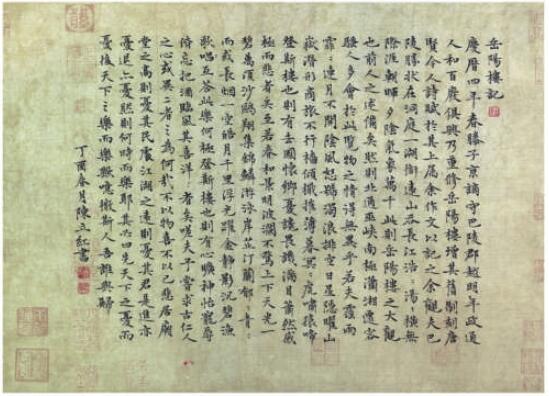 岳陽樓記
慶曆四年春滕子京謫守巴陵郡越明年政通
人和百廢俱興乃重修岳陽樓增其舊制刻唐
賢今人詩賦於其上屬余作文以記之余觀夫巴
陵勝狀在洞庭一湖銜遠山吞長江浩:湯:橫無
際涯朝暉夕陰氣象萬千此則岳陽樓之大觀
也前人之述備矣然則北通巫峽南極瀟湘遷客
騷人多會於此覽物之情得無異乎若夫霪雨
霏:連月不開陰風怒號濁浪排空日星隱曜山
嶽潛形商旅不行檣傾楫摧薄暮冥:虎嘯猿啼
登斯樓也則有去國懷鄉憂讒畏譏滿目蕭然感
極而悲者矣至若春和景明波瀾不驚上下天光一
碧萬頃沙鷗翔集錦鱗游泳岸芷汀蘭郁:青:
而或長烟一空皓月千里浮光躍金靜影沉璧漁
歌唱互答此樂何極登斯樓也則有心曠神怡寵辱
俱忘把酒臨風其喜洋:者矣嗟夫予嘗求古仁人
之心或異二者之為何哉不以物喜不以己悲居廟
堂之高則憂其民處江湖之遠則憂其君是進亦
憂退亦憂然則何時而樂耶其必曰先天下之憂而
憂後天下之樂而樂歟噫微斯人吾誰與歸
丁酉春月陳立紅書